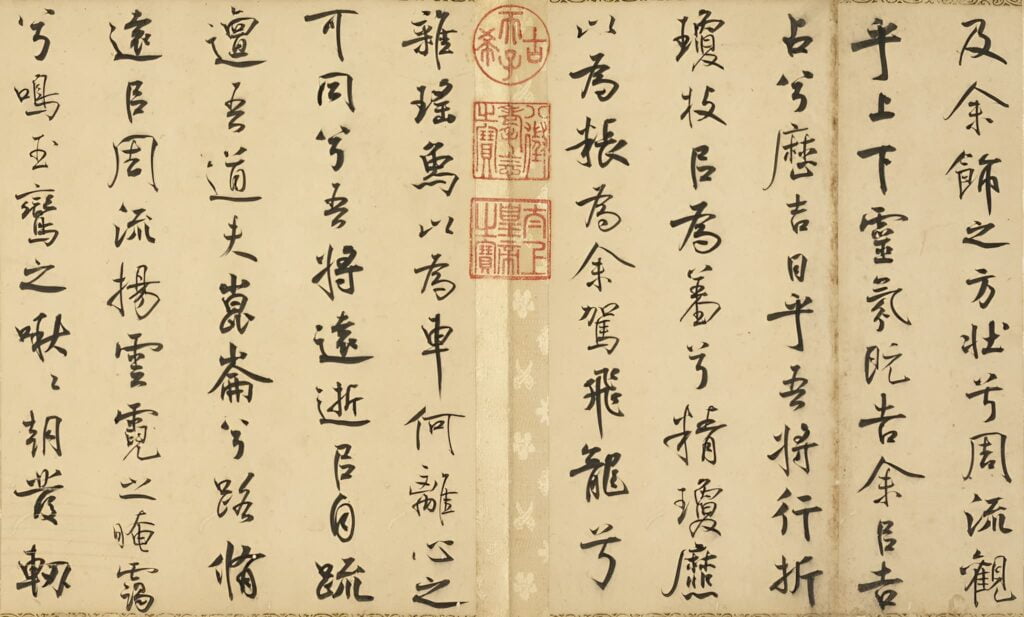 及余飾之方壯兮周流觀
乎上下靈氛既告余㠯吉
占兮歷吉日乎吾將行折
瓊枝㠯為羞兮精瓊爢
以為粻為余駕飛龍兮
古希天子
八徵耄念之寶
太上皇帝之寶
雜瑤象以為車何離心之
可同兮吾將遠逝㠯自疏
邅吾道夫崑崙兮路脩
遠㠯周流揚雲霓之晻靄
兮鳴玉鸞之啾〻朝發軔